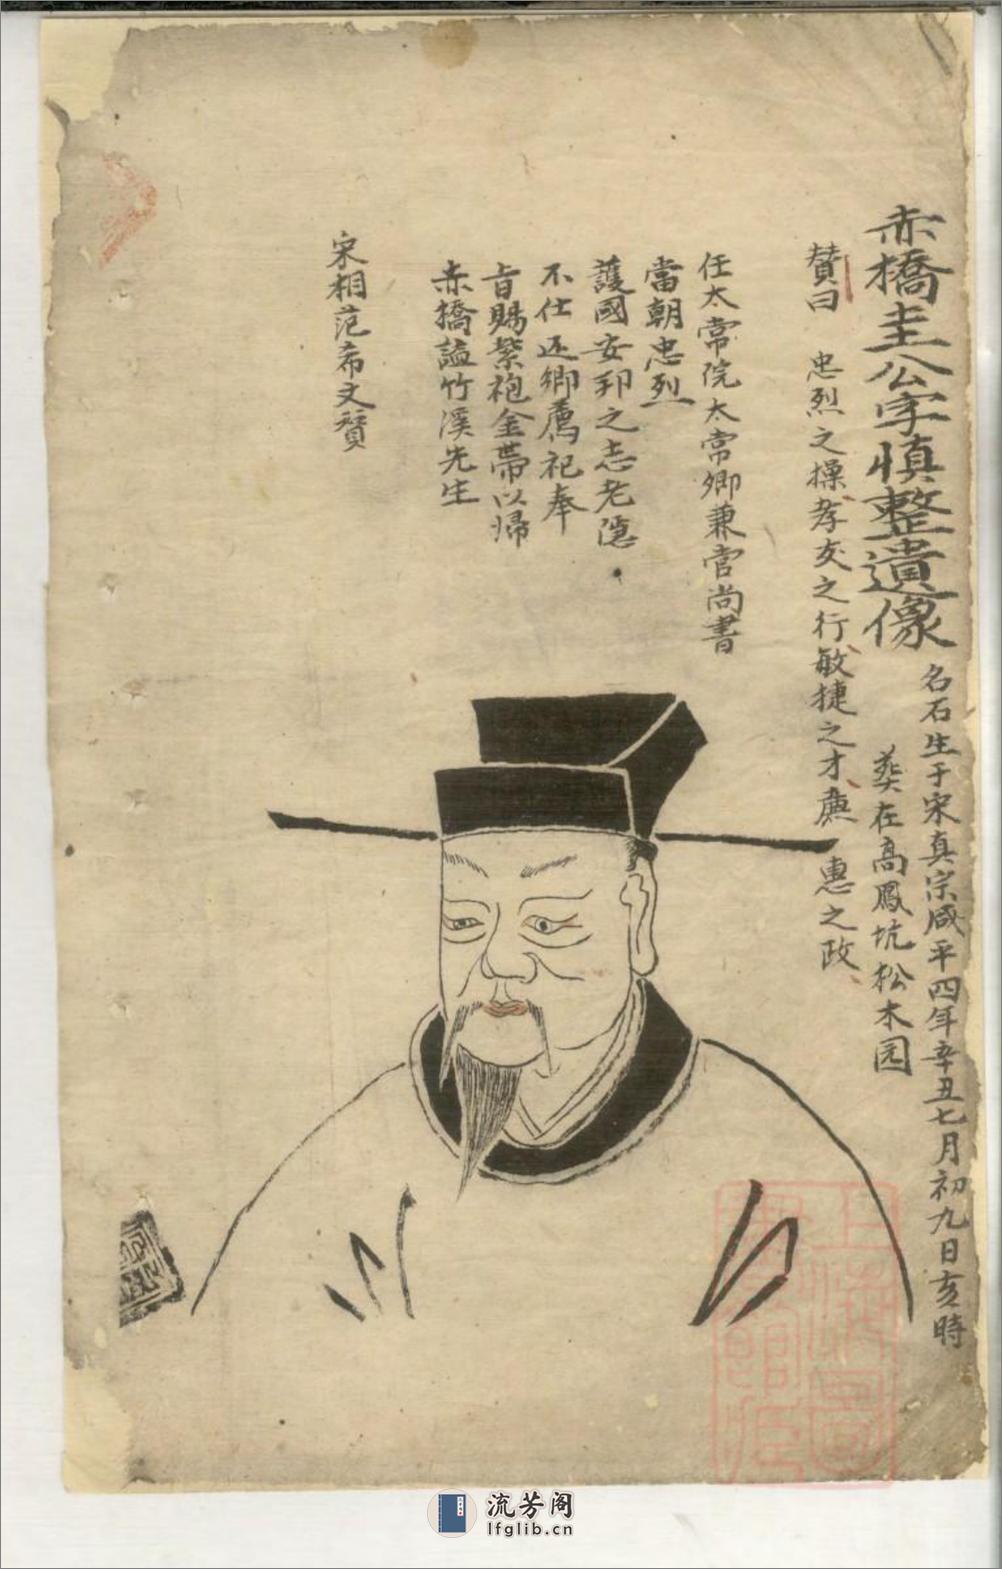 赤橋圭公字慎整遺像
名石生于宋真宗咸平四年辛丑七月初九日亥時
葬在高鳳坑松木园
贊曰 忠烈之操孝友之行敏捷之才廉 惠之政
任太常院太常卿兼官尚書
當朝忠烈
護國安邦之志老隱
不仕还鄉薦祀奉
旨賜紫袍金帶以歸
赤橋謚竹溪先生
宋相范希文贊
上海圖
書館藏
流芳阁
lfglib.cn